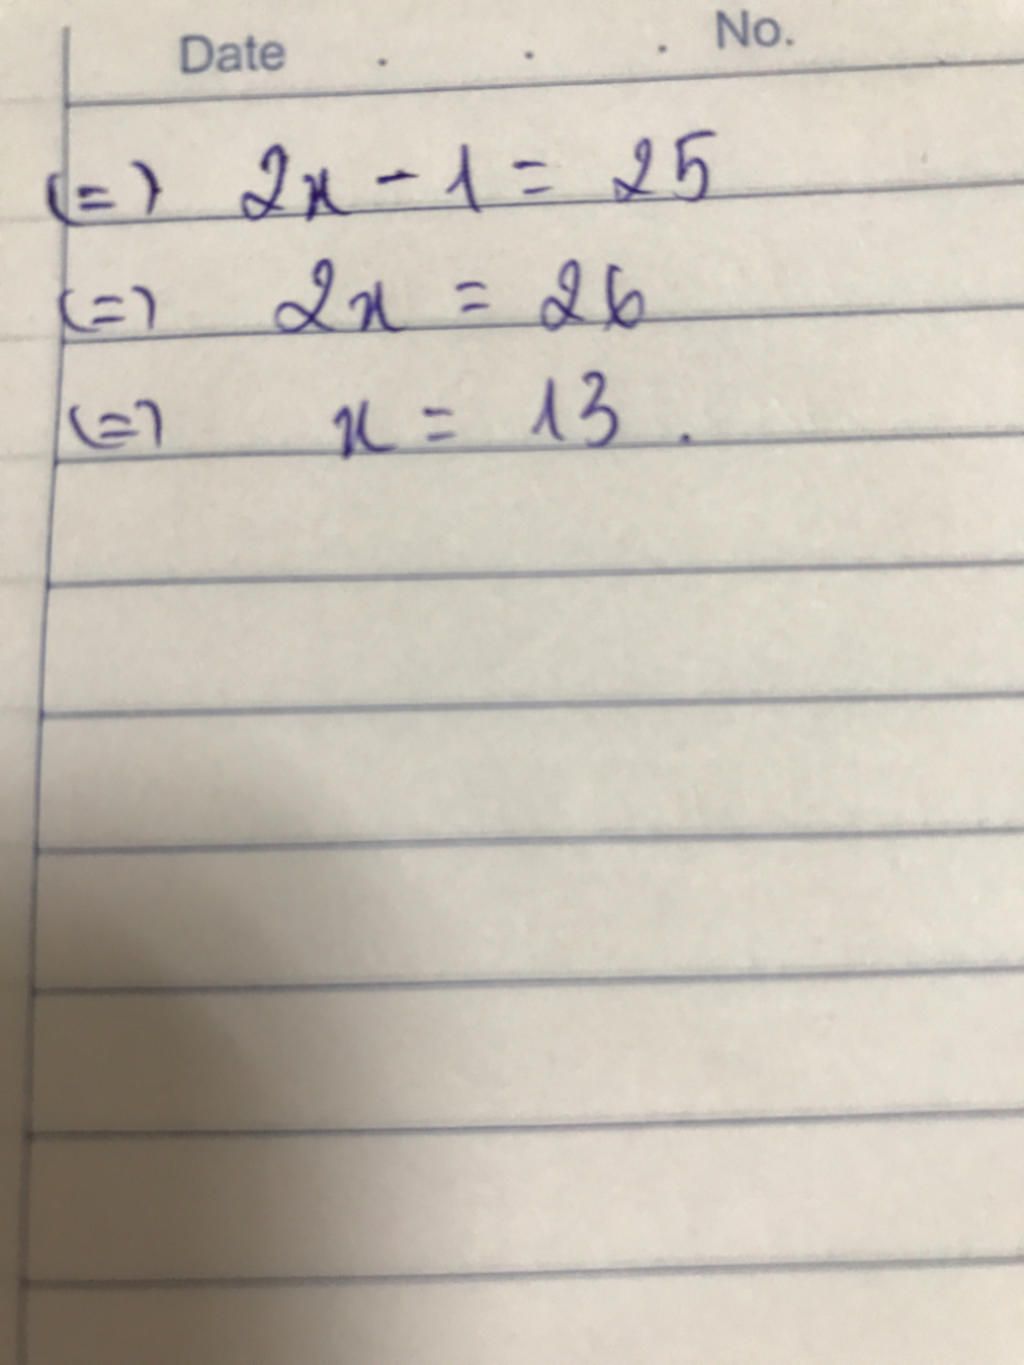 Date . . . No.
(=) 2x - 1 = 25
(=) 2x = 26
(=) x = 13 .